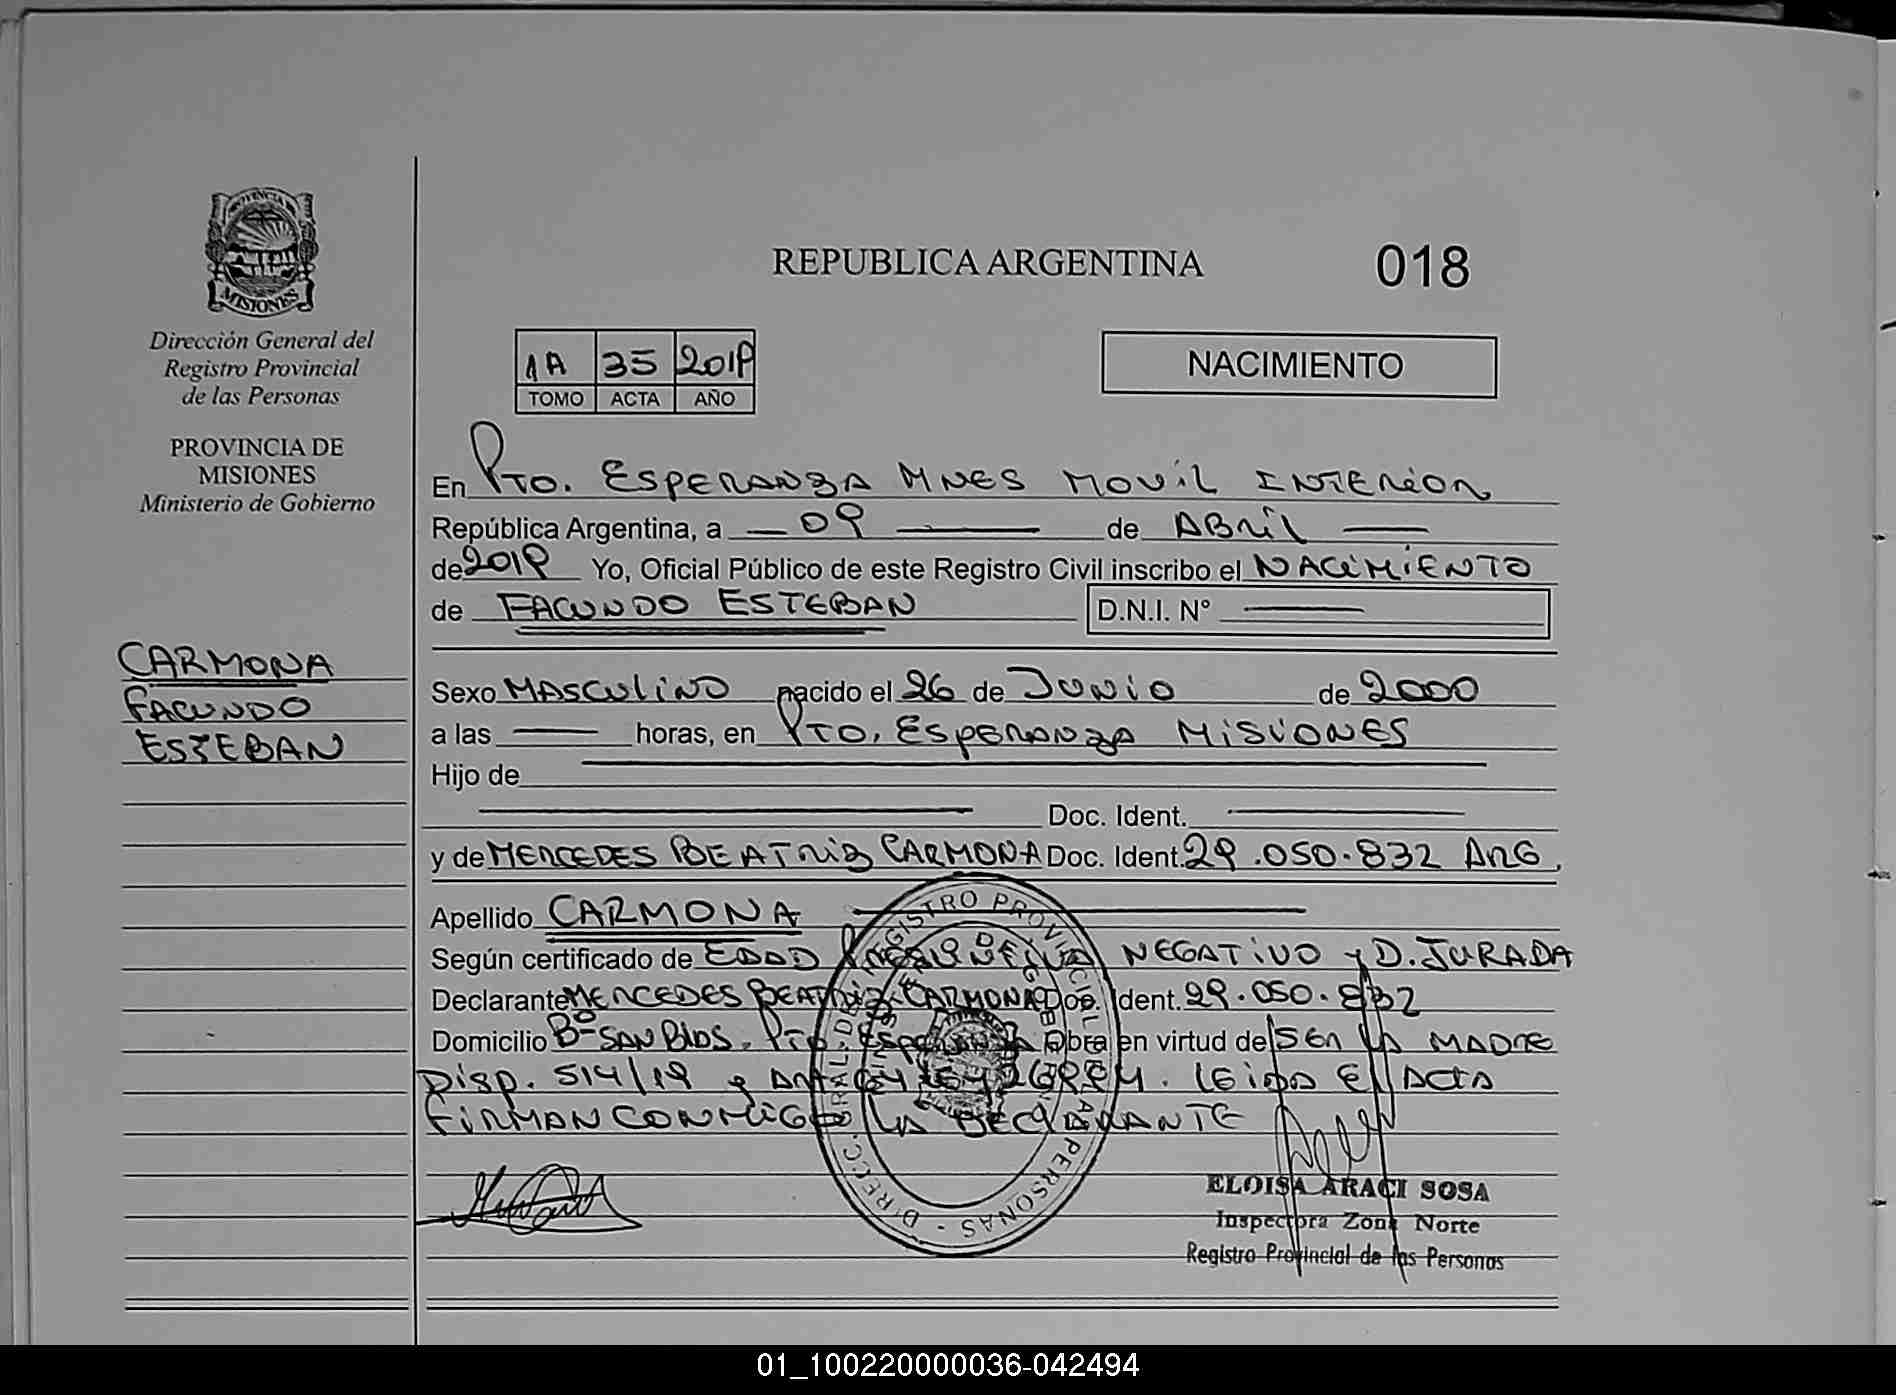 PROVINCIA DE
MISIONES
Dirección General del
Registro Provincial
de las Personas
PROVINCIA DE
MISIONES
Ministerio de Gobierno
CARMONA
FACUNDO
ESTEBAN
REPUBLICA ARGENTINA
018
1A 35 2019
TOMO ACTA AÑO
NACIMIENTO
En Pto. ESPERANZA MNES MOVIL INTERIOR
República Argentina, a 09 de ABRIL
de 2019 Yo, Oficial Público de este Registro Civil inscribo el NACIMIENTO
de FACUNDO ESTEBAN D.N.I. N°
Sexo MASCULINO nacido el 26 de JUNIO de 2000
a las horas, en PTO. ESPERANZA MISIONES
Hijo de
Doc. Ident.
y de MERCEDES BEATRIZ CARMONA Doc. Ident. 29.050.832 ARG.
Apellido CARMONA
Según certificado de EDAD PRESUNTIVA NEGATIVO y D. JURADA
Declarante MERCEDES BEATRIZ CARMONA Doc. Ident. 29.050.832
Domicilio Bº SAN BLAS. Pto. Esperanza Obra en virtud de SER LA MADRE
Disp. 514/19 y Art. LEIDA EL ACTA
FIRMAN CONMIGO LA DECLARANTE
DIRECC. GRAL. DEL REGISTRO PROVINCIAL DE LAS PERSONAS
ELOISA ARACI SOSA
Inspectora Zona Norte
Registro Provincial de las Personas
01_100220000036-042494